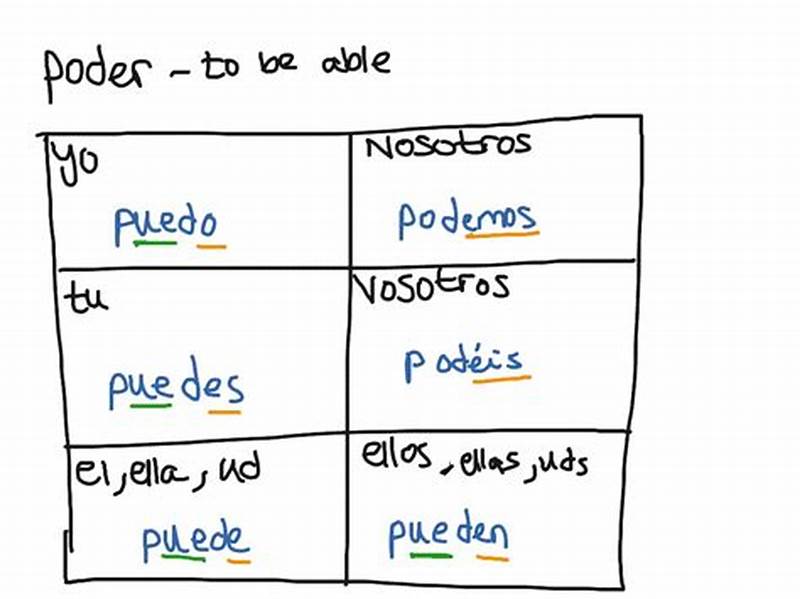 poder - to be able
yo
puedo
Nosotros
podemos
tu
puedes
Vosotros
podéis
el, ella, ud
puede
ellos, ellas, uds
pueden